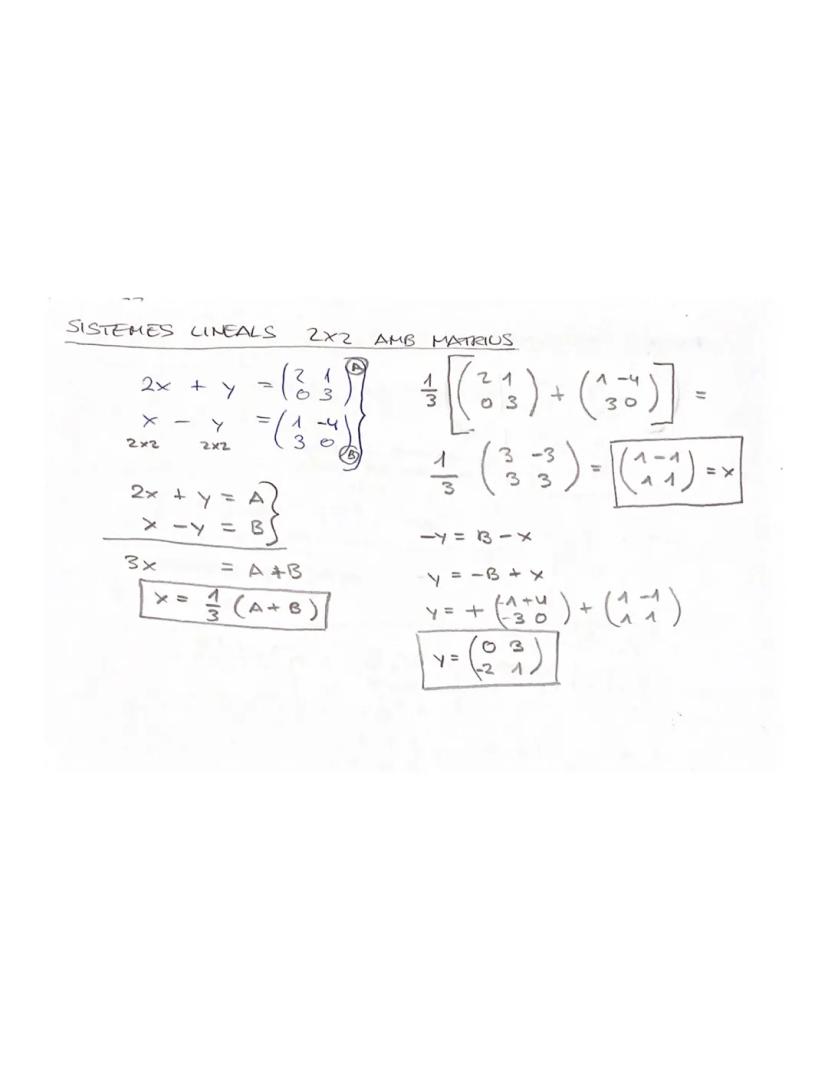 SISTEMES LINEALS 2x2 AMB MATRIUS
2x + y = (2 1
0 3) A
x - y = (1 -4
3 0) B
2x2 2x2
2x + y = A
x - y = B
3x = A+B
x = 1/3 (A+B)
1/3 [(2 1
0 3) + (1 -4
3 0)] =
1/3 (3 -3
3 3) = (1 -1
1 1) = x
-y = B - x
y = -B + x
y = + (-1 +4
-3 0) + (1 -1
1 1)
y = (0 3
-2 1)